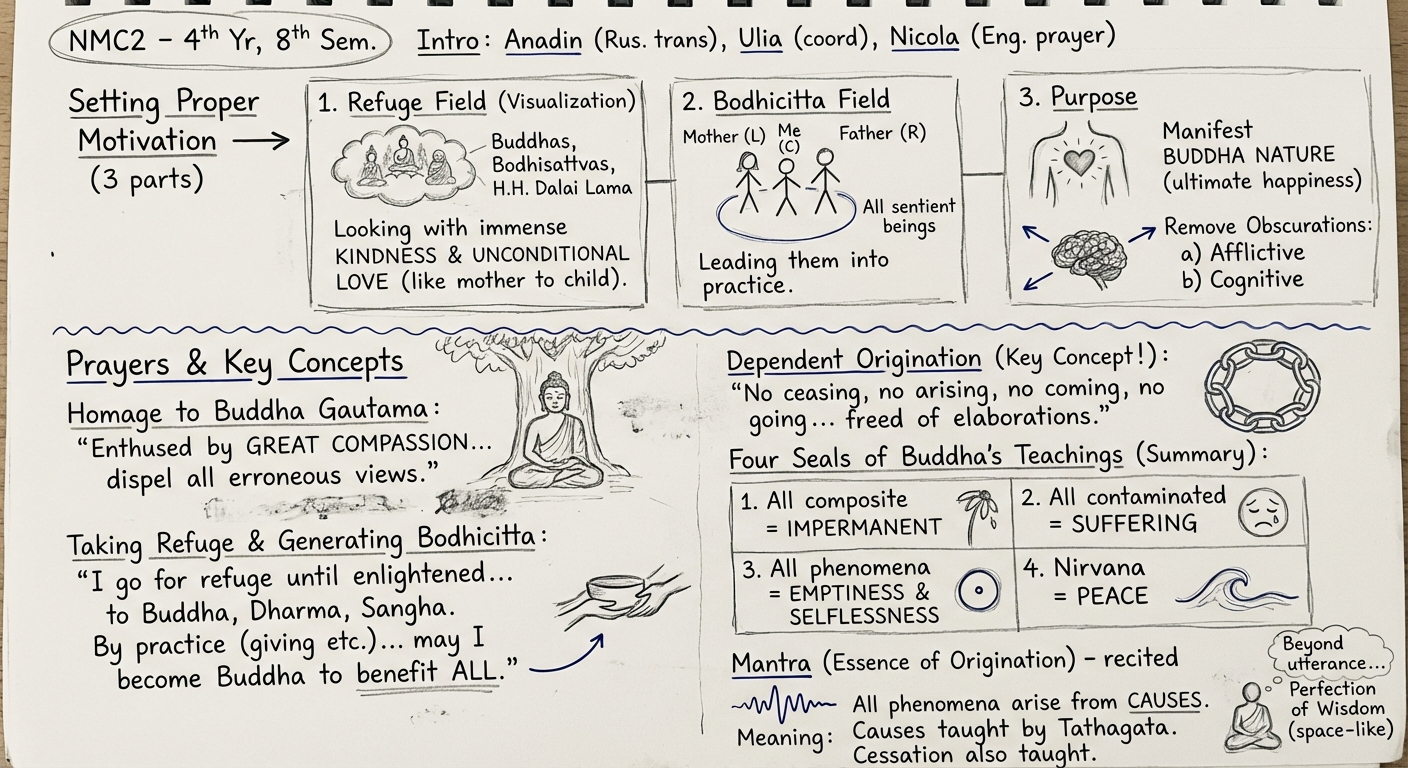 NMC2 – 4th Yr, 8th Sem.
Intro: Anadin (Rus. trans), Ulia (coord), Nicola (Eng. prayer)
Setting Proper
Motivation →
(3 parts)
1. Refuge Field (Visualization)
Buddhas,
Bodhisattvas,
H.H. Dalai Lama
Looking with immense
KINDNESS & UNCONDITIONAL
LOVE (like mother to child).
2. Bodhicitta Field
Mother (L)
Me
(C)
Father (R)
All sentient
beings
Leading them into
practice.
3. Purpose
Manifest
BUDDHA NATURE
(ultimate happiness)
Remove Obscurations:
a) Afflictive
b) Cognitive
Prayers & Key Concepts
Homage to Buddha Gautama:
“Enthused by GREAT COMPASSION...
dispel all erroneous views.”
Taking Refuge & Generating Bodhicitta:
“I go for refuge until enlightened...
to Buddha, Dharma, Sangha.
By practice (giving etc.)... may I
become Buddha to benefit ALL.”
Dependent Origination (Key Concept!):
“No ceasing, no arising, no coming, no
going... freed of elaborations.”
Four Seals of Buddha's Teachings (Summary):
1. All composite
= IMPERMANENT
2. All contaminated
= SUFFERING
3. All phenomena
= EMPTINESS &
SELFLESSNESS
4. Nirvana
= PEACE
Mantra (Essence of Origination) – recited
Meaning:
All phenomena arise from CAUSES.
Causes taught by Tathagata.
Cessation also taught.
Beyond
utterance...
Perfection
of Wisdom
(space-like)